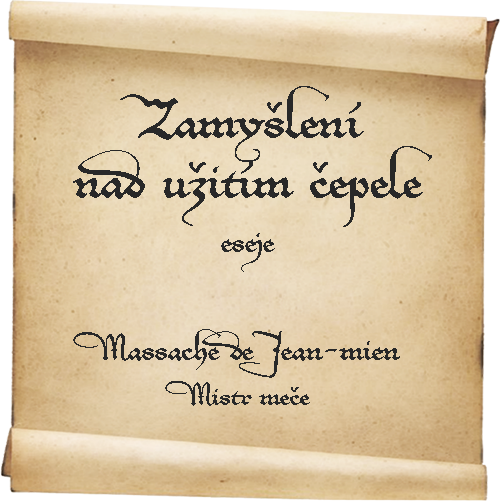 Zamyšlení
nad užitím čepele
eseje
Massache de Jean-mien
Mistr meče